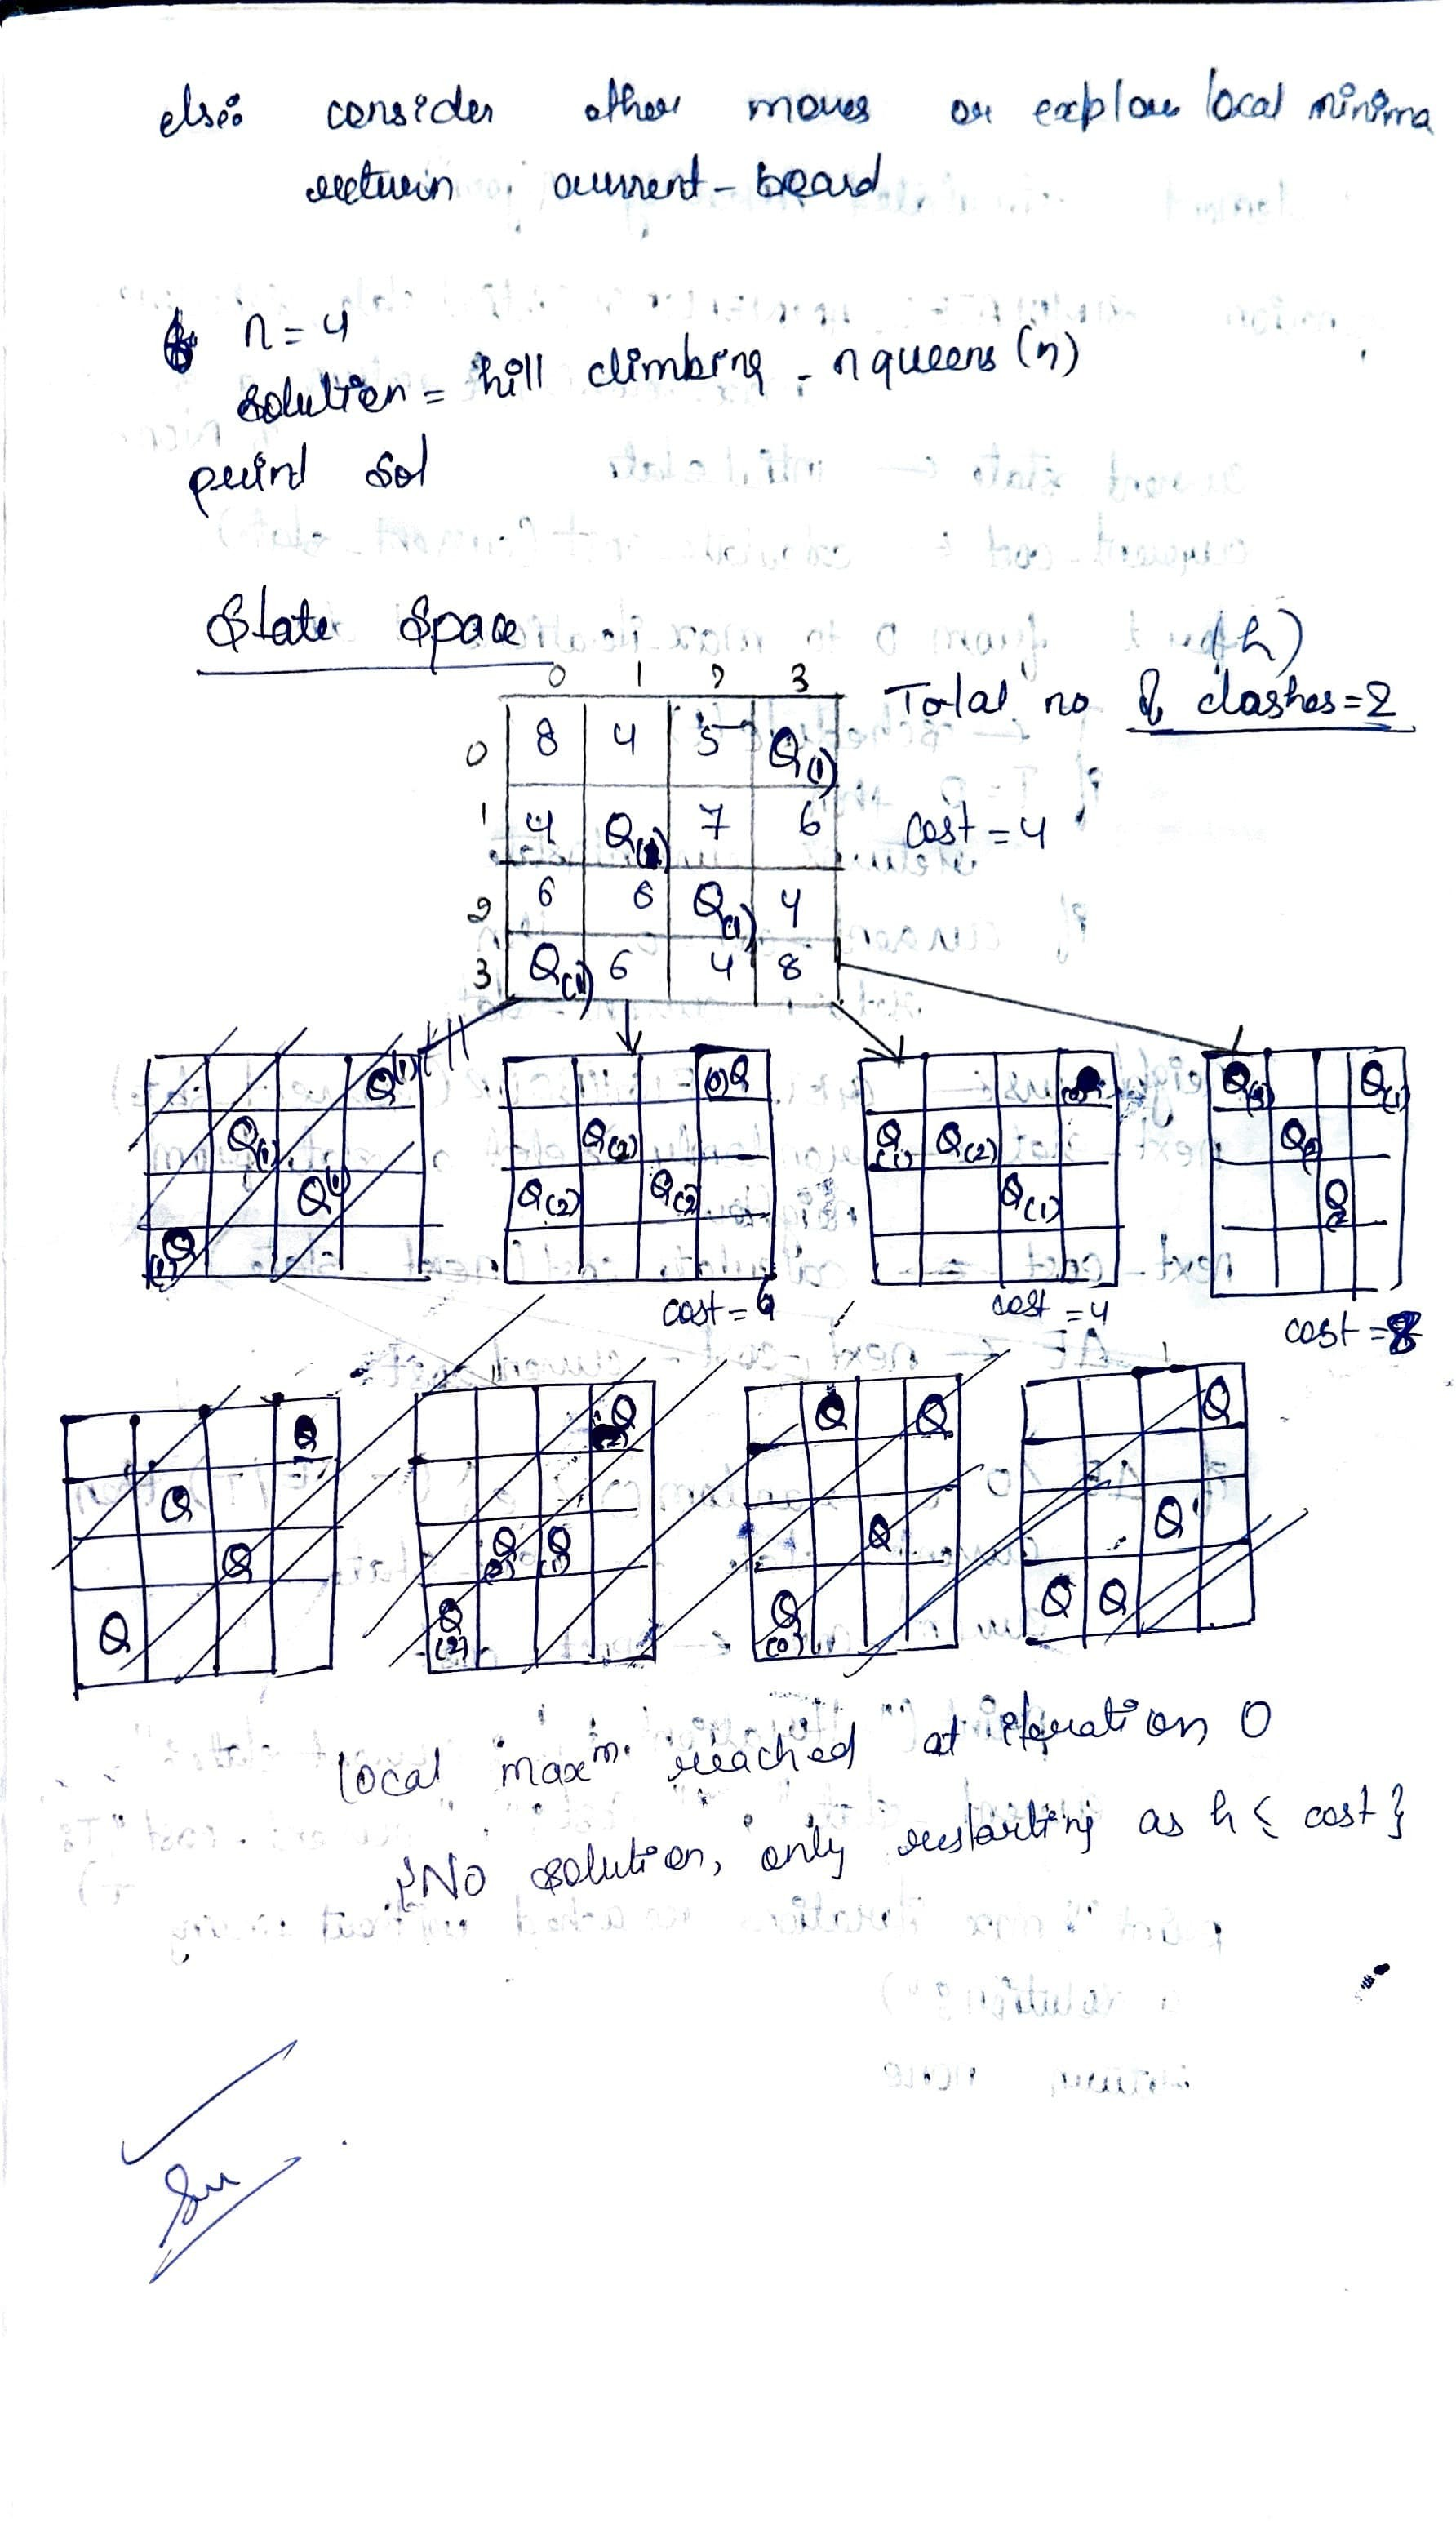 else: consider other moves or explore local minima
return current-board
n = 4
solution = hill climbing - nqueens (n)
print sol
State Space
(h)
Total no of clashes = 2
0 1 2 3
0 8 4 5 Q(1)
cost = 4
1 4 Q(1) 7 6
2 6 6 Q(1) 4
3 Q(1) 6 4 8
Q(1)
Q(1)
Q(1)
Q(1)
(0)Q
Q(2)
Q(2) Q(2)
cost = 6
Q(1) Q(2)
Q(1)
cost = 4
Q(3) Q(1)
Q
Q
cost = 8
Q
Q
Q
Q
Q
Q Q
(1)
Q
(2)
Q Q
Q
Q
(0)
Q
Q
Q Q
local maxm. reached at iteration 0
{No solution, only restarting as h < cost}